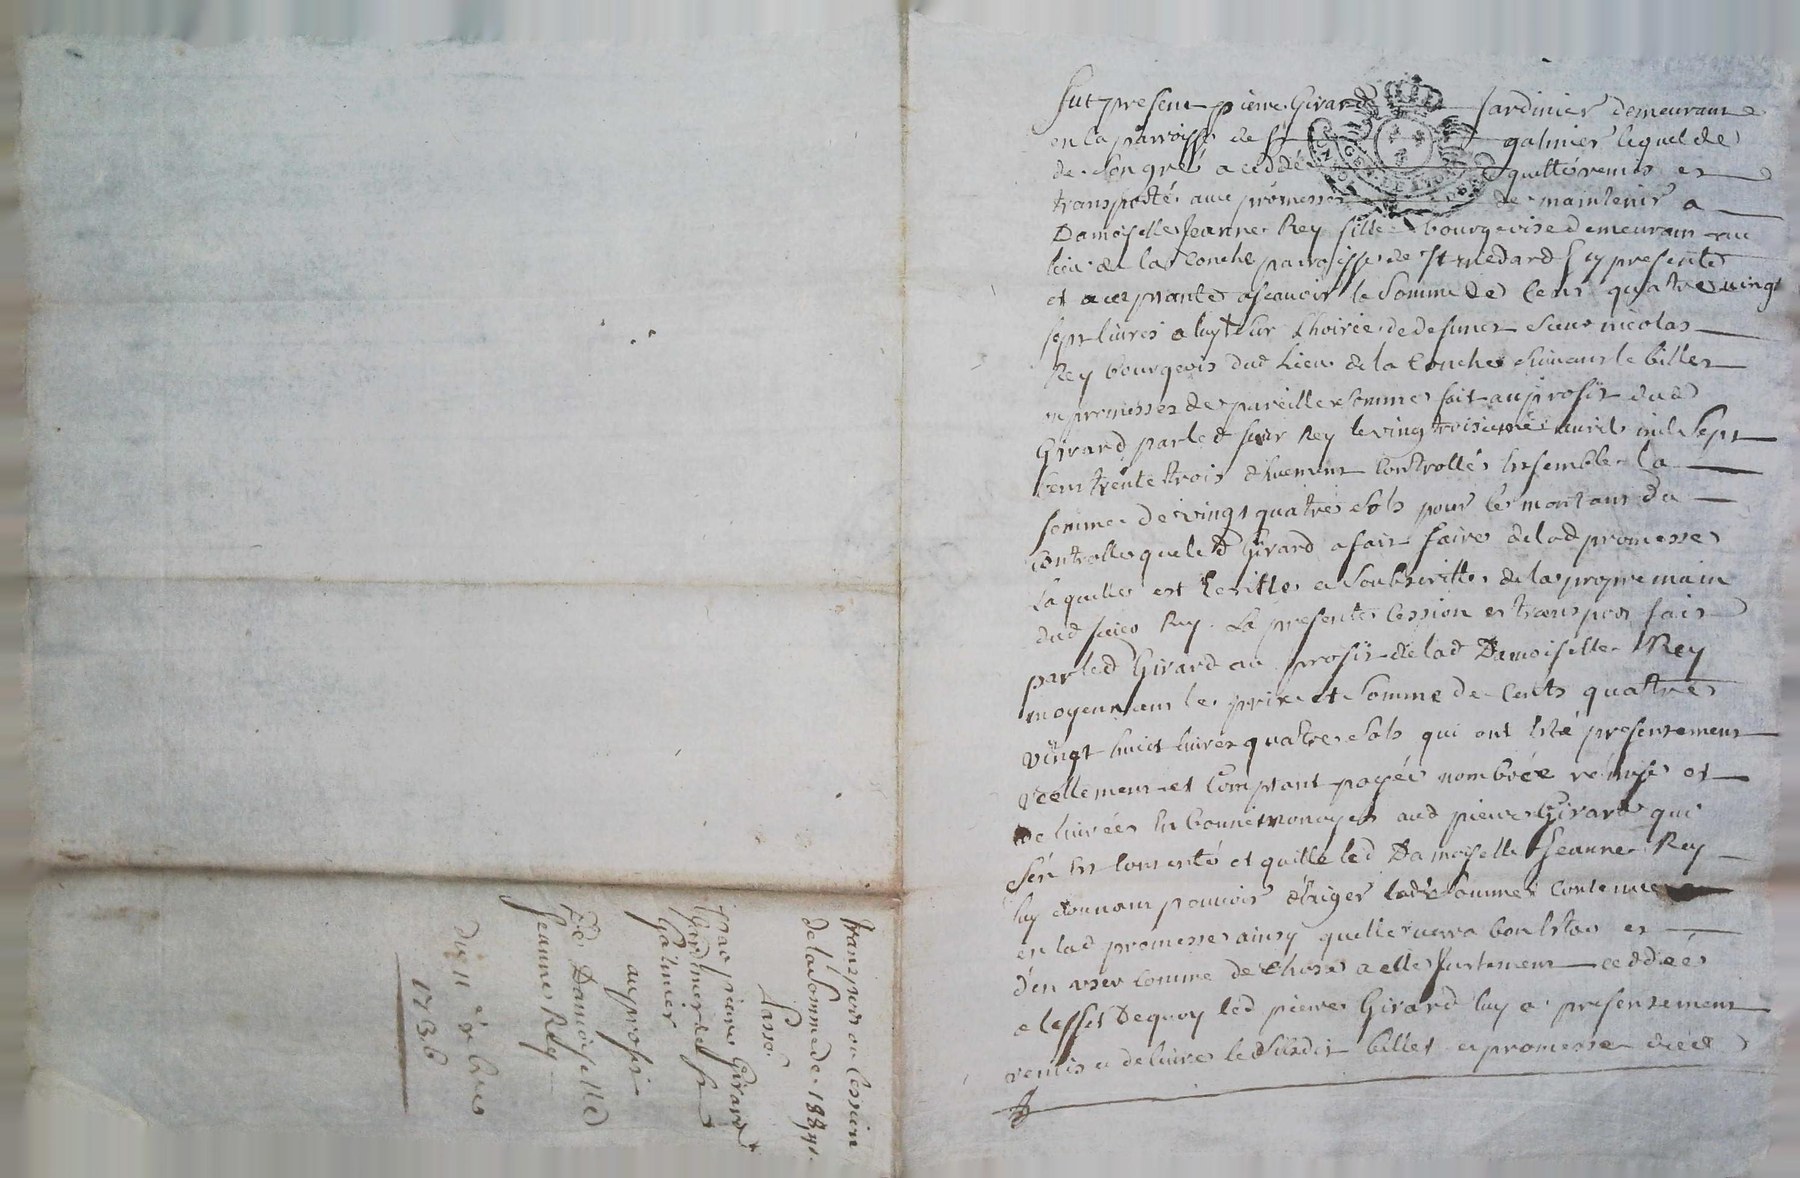 fut present pierre Girard Jardinier demeurant
en la parroisse de St galmier lequel de
de son gré a ceddé quitté remis et
transporté avec promesse de maintenir a
Damoiselle Jeanne Rey fille bourgeoise demeurant au
lieu de la Conche parroisse de St medard icy presente
et acceptante ascavoir la somme de Cent quatre vingt
sept livres a luy sur Lhoirie de defunct sieur nicolas
Rey bourgeois dud Lieu de la Conche suivant le billet
ou promesse de pareille somme fait au profit dud
Girard par led sieur Rey le vingt troisieme avril mil sept
cent trente trois dhuement Controllé Ensemble la
somme de vingt quatre sols pour le montant du
Controlle que led Girard a fait faire de lad promesse
Laquelle est Ecritte e soubscritte de la propre main
dud sieur Rey. La presente Cession et transport fait
par led Girard au profit de lad Damoiselle Rey
moyennant le prix et somme de Cents quattre
vingt huict livres quatre sols qui ont Esté presentement
reellement et Comptant payée nombrée remise et
delivrée En bonne monoye aud pierre Girard qui
sen En Contenté et quitte led Damoiselle Jeanne Rey
luy donnant pouvoir dexiger lad somme Contenue
en lad promesse ainsy quelle verra bon Estre et
den user Comme de Chose a elle justement ceddée
a leffet Dequoy led pierre Girard luy a presentement
remis e delivré le susdit billet e promesse
transport ou Cession
de la somme de 188lt 4s
Passé
par pierre Girard
Jardinier de St
Galmier
au profit
de Damoiselle
Jeanne Rey
du 11
1736